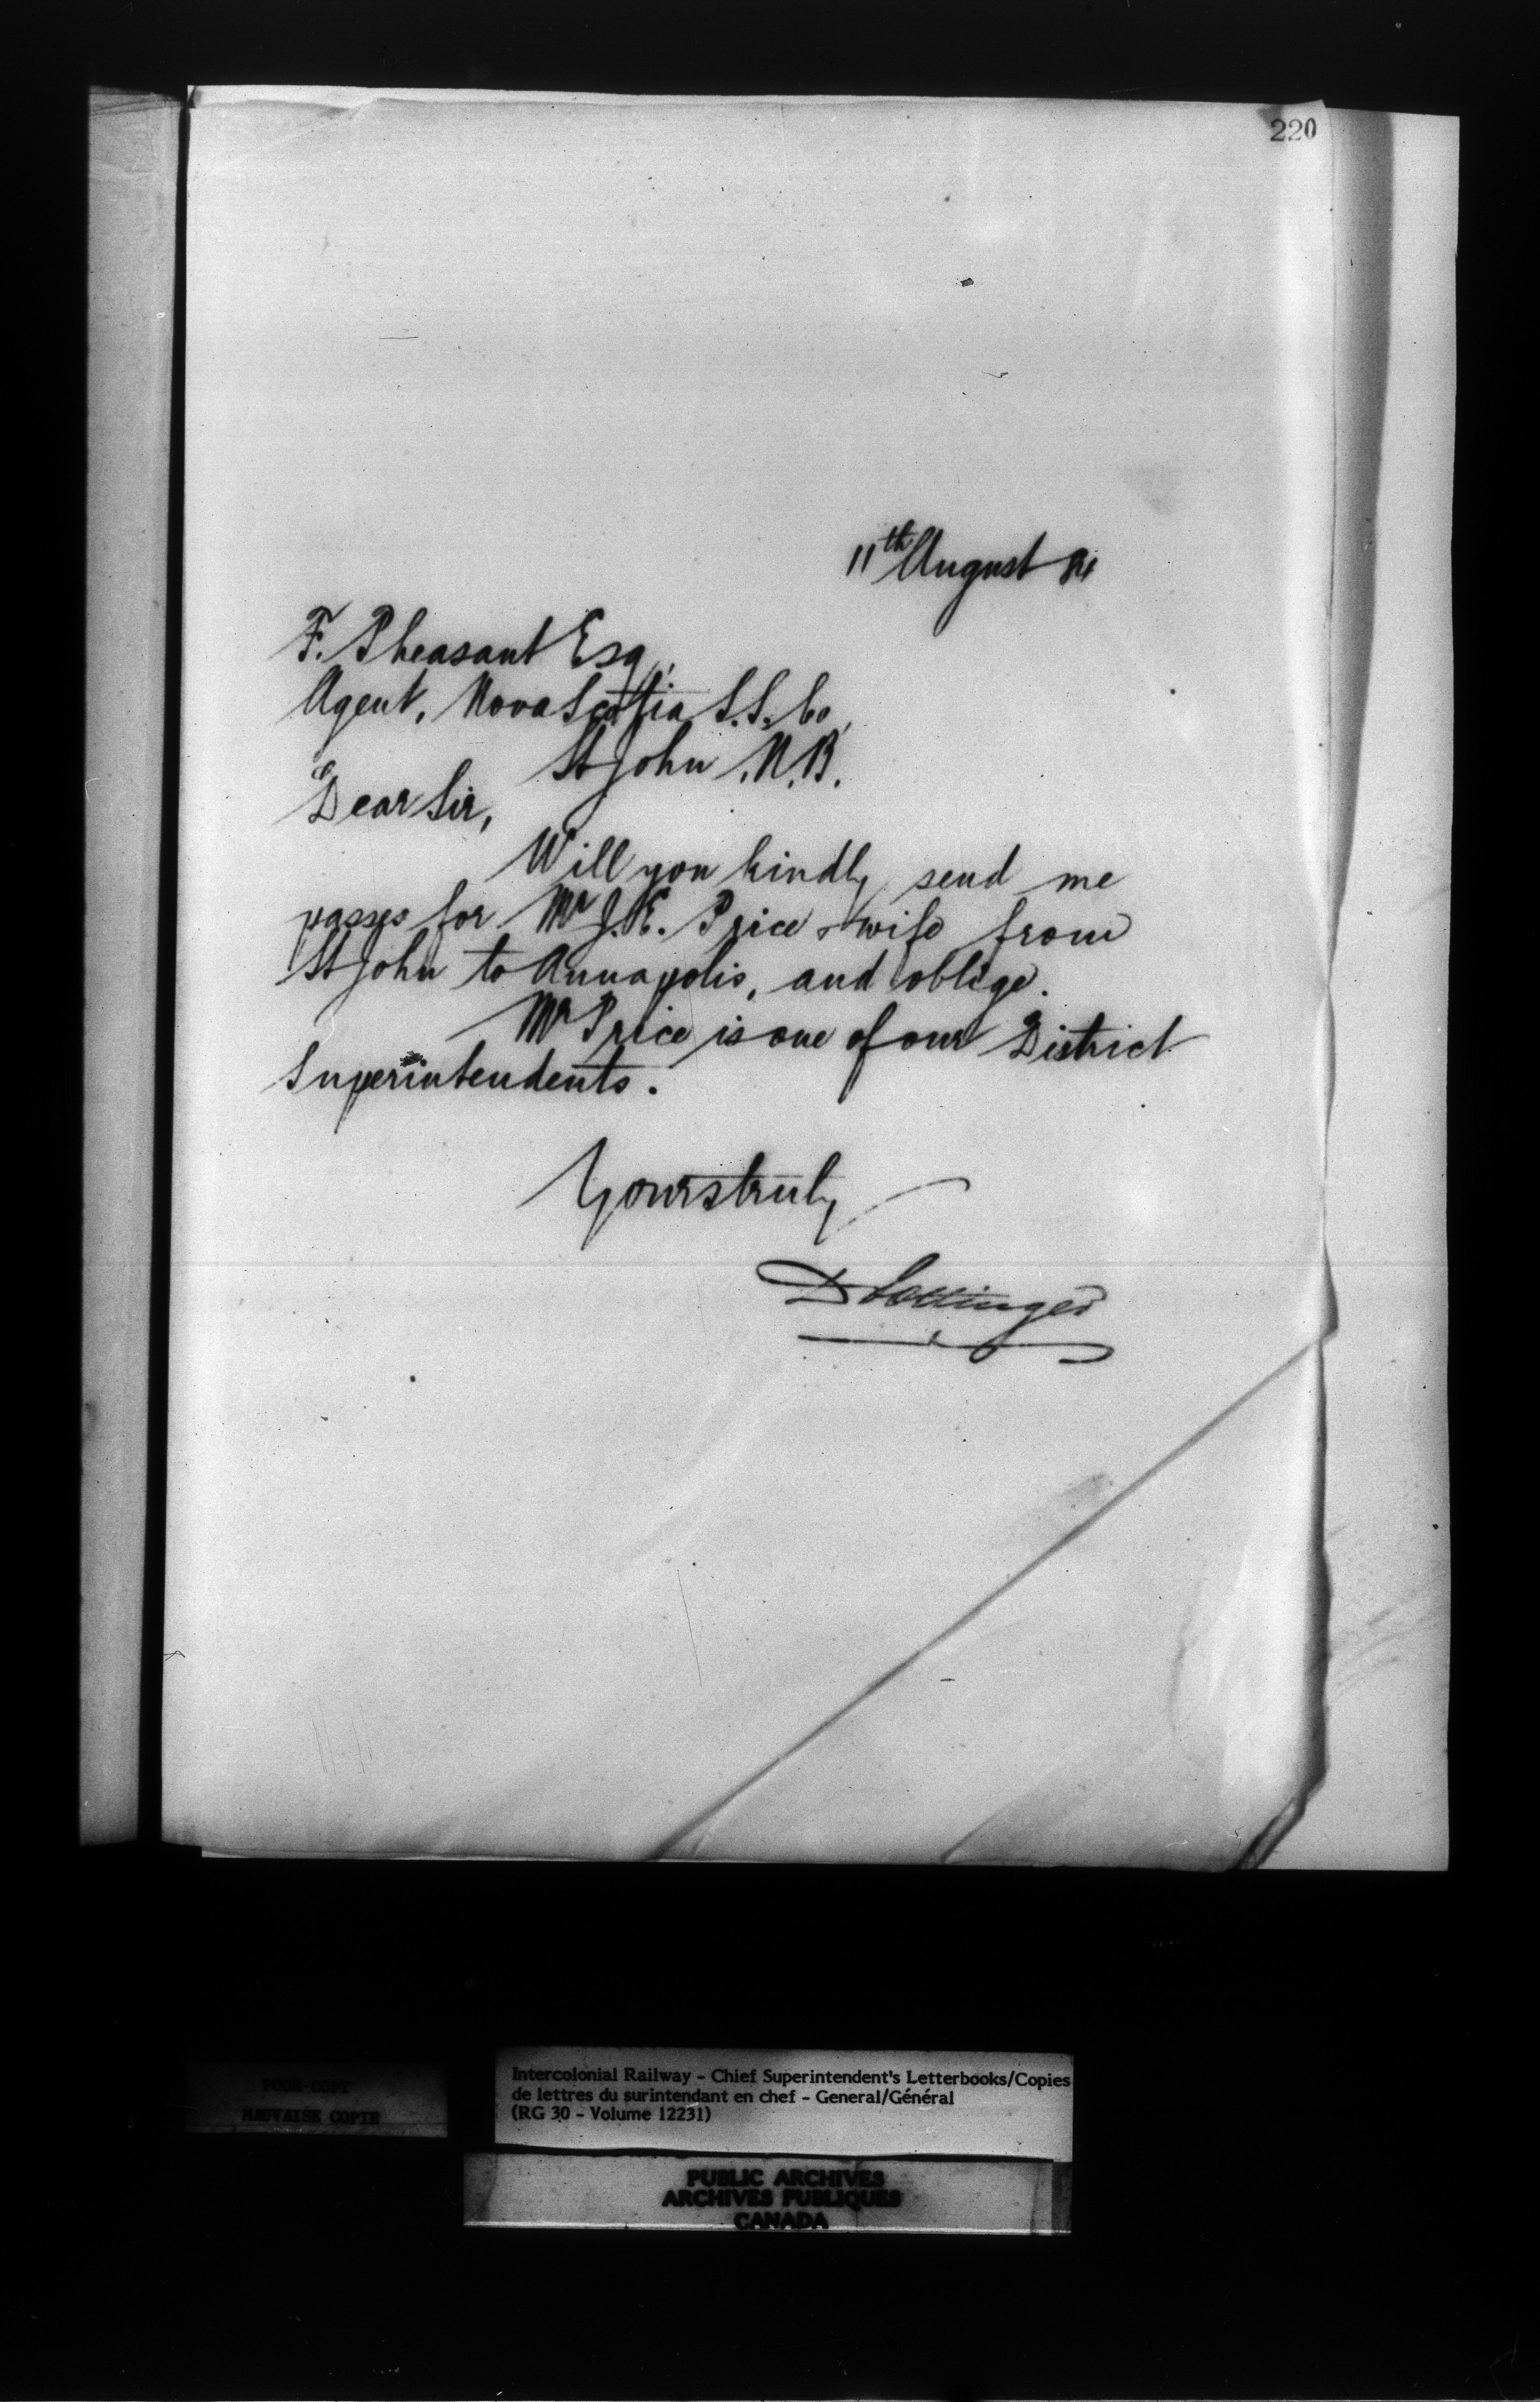 220
11th August
F. Pheasant Esq,
Agent, Nova Scotia S.S. Co,
St John N.B.
Dear Sir,
Will you kindly send me
passes for Mr J. E. Price & wife from
St John to Annapolis, and oblige.
Mr Price is one of our District
Superintendents.
Yours truly
D Pottinger
POOR COPY
MAUVAISE COPIE
Intercolonial Railway - Chief Superintendent's Letterbooks/Copies
de lettres du surintendant en chef - General/Général
(RG 30 - Volume 12231)
PUBLIC ARCHIVES
ARCHIVES PUBLIQUES
CANADA